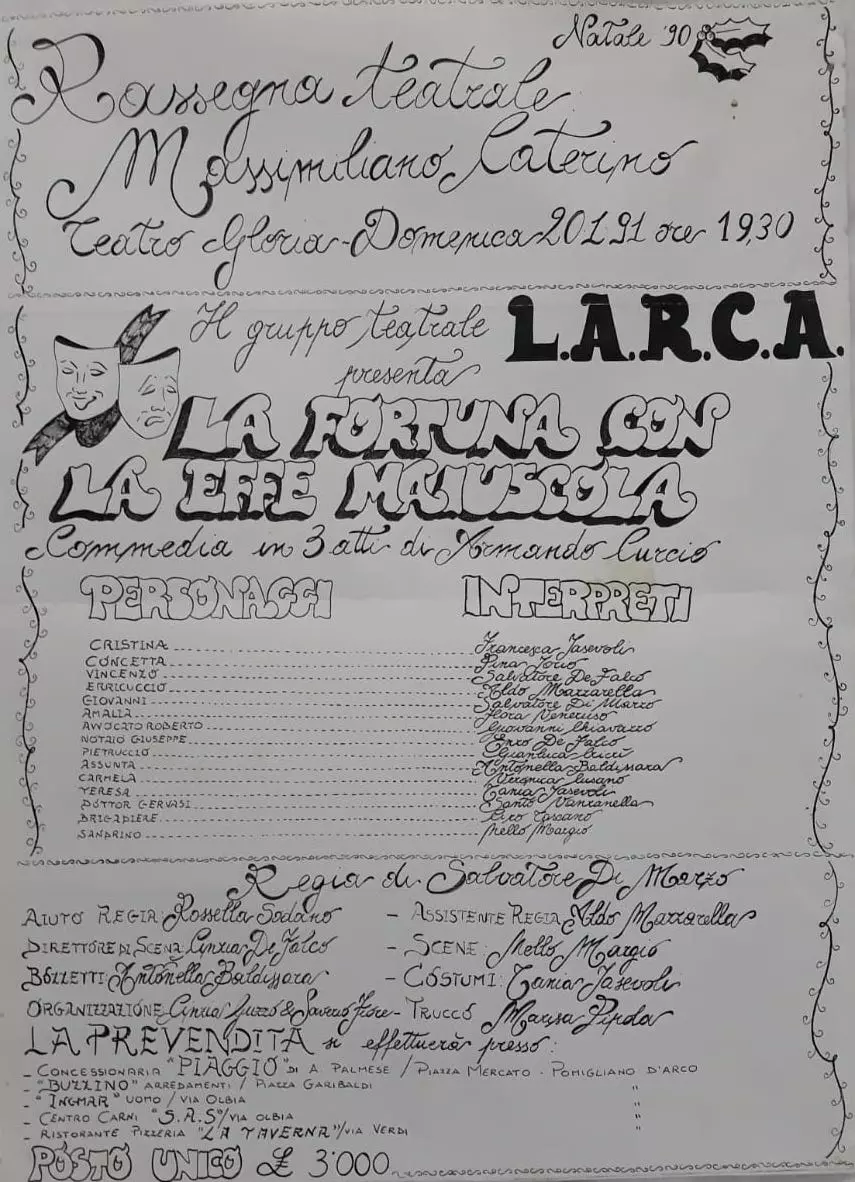 Natale '90
Rassegna teatrale
Massimiliano Caterino
Teatro Gloria - Domenica 20 1 91 ore 19,30
Il gruppo teatrale L.A.R.C.A.
presenta
LA FORTUNA CON
LA EFFE MAIUSCOLA
Commedia in 3 atti di Armando Curcio
PERSONAGGI INTERPRETI
CRISTINA Francesca Iasevoli
CONCETTA Pina Iorio
VINCENZO Salvatore De Falco
ERRICUCCIO Aldo Mazzarella
GIOVANNI Salvatore Di Marzo
AMALIA Flora Veneruso
AVVOCATO ROBERTO Giovanni Chiavazzo
NOTAIO GIUSEPPE Enzo De Falco
PIETRUCCIO Gianluca
ASSUNTA Antonella Baldissara
CARMELA Veronica Lusano
TERESA Tania Iasevoli
DOTTOR GERVASI Santo Vanzanella
BRIGADIERE Ciro Toscano
SANDRINO Mello Margio
Regia di Salvatore Di Marzo
AIUTO REGIA: Rossella Sodano - ASSISTENTE REGIA: Aldo Mazzarella
DIRETTORE DI SCENA: Cinzia De Falco - SCENE: Mello Margio
BOZZETTI: Antonella Baldissara - COSTUMI: Tania Iasevoli
ORGANIZZAZIONE: Cinzia & Saverio Fiore - TRUCCO Marisa Pipola
LA PREVENDITA si effettuerà presso:
- CONCESSIONARIA "PIAGGIO" DI A. PALMESE / PIAZZA MERCATO - POMIGLIANO D'ARCO
- "BUZZINO" ARREDAMENTI / PIAZZA GARIBALDI "
- "INGMAR" UOMO / VIA OLBIA "
- CENTRO CARNI "S.A.S" / VIA OLBIA "
- RISTORANTE PIZZERIA "LA TAVERNA" / VIA VERDI "
POSTO UNICO £ 3.000